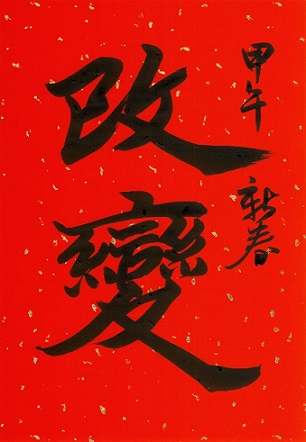 甲午 新春
改變